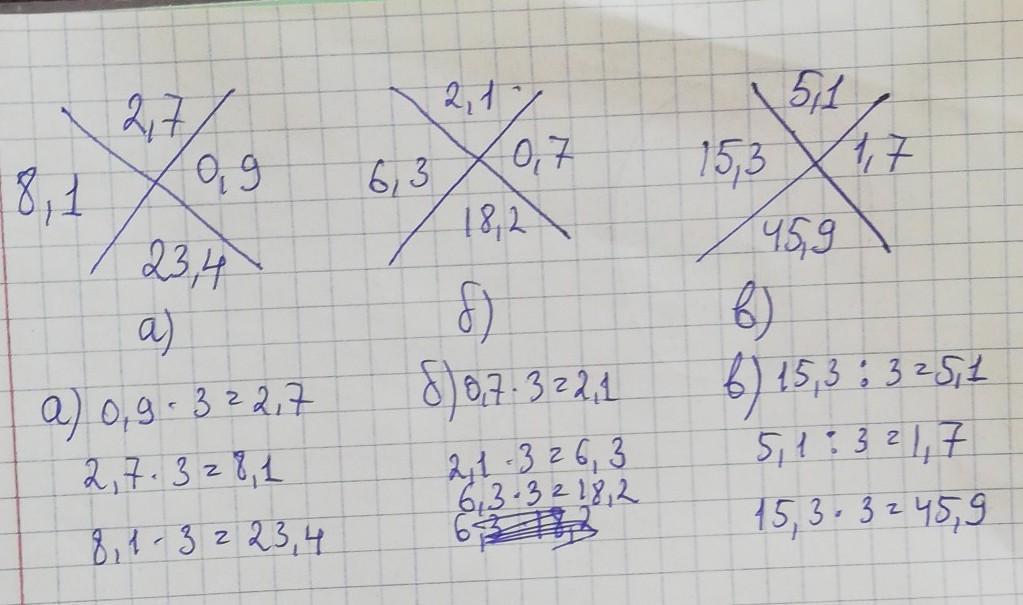 2,7
8,1 0,9
23,4
а)
2,1
6,3 0,7
18,2
б)
5,1
15,3 1,7
45,9
в)
а) 0,9 · 3 = 2,7
2,7 · 3 = 8,1
8,1 · 3 = 23,4
б) 0,7 · 3 = 2,1
2,1 · 3 = 6,3
6,3 · 3 = 18,2
в) 15,3 : 3 = 5,1
5,1 : 3 = 1,7
15,3 · 3 = 45,9